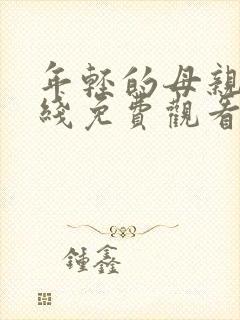 年轻的母親
綫免費觀看
鍾鑫